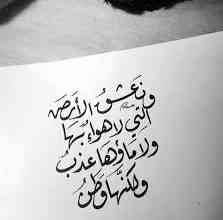 ونعشقُ الأرضَ
التي لا هواءُ بها
ولا ماؤها عذبُ
ولكنّها وَطَنُ